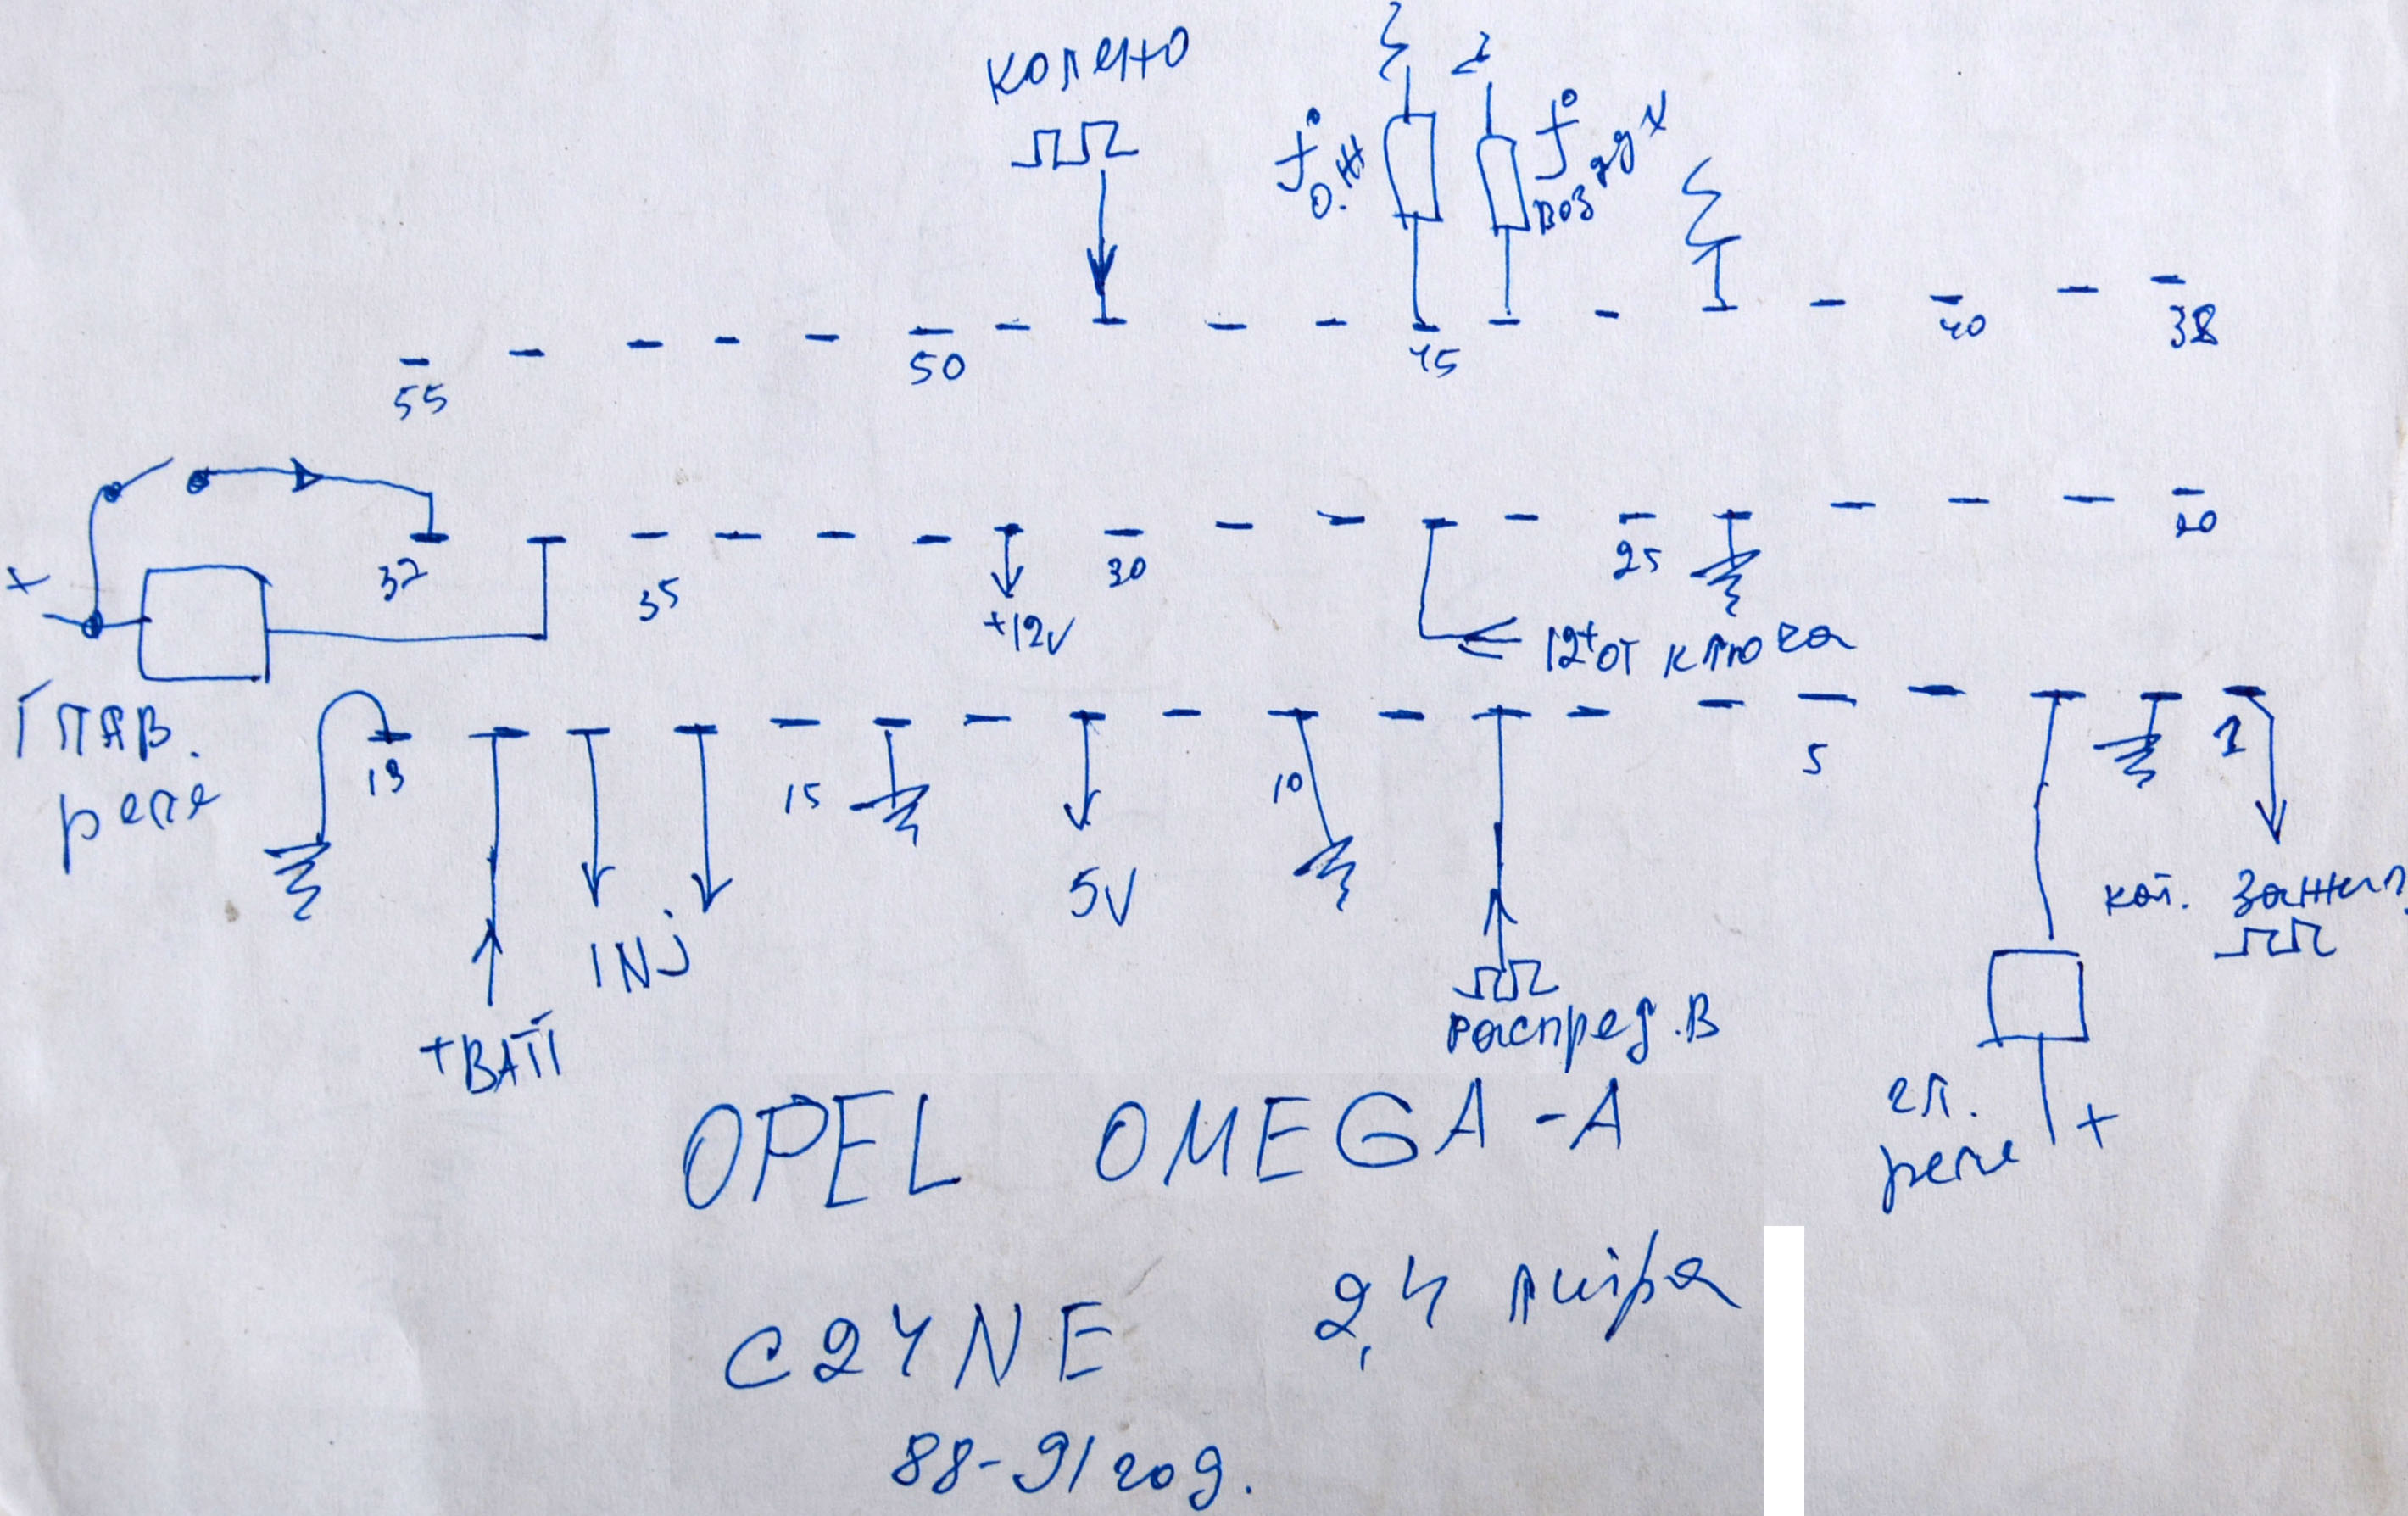 колено
t° о.ж
t° воздух
55 50 45 40 38
37 35 30 25 20
+
+12V
12+ от ключа
Глав.
реле
19 15 10 5 1
5V
INJ
+BATT
распред.в
кат. зажиг.
гл.
реле +
OPEL OMEGA-A
C24NE 2,4 литра
88-91 год.